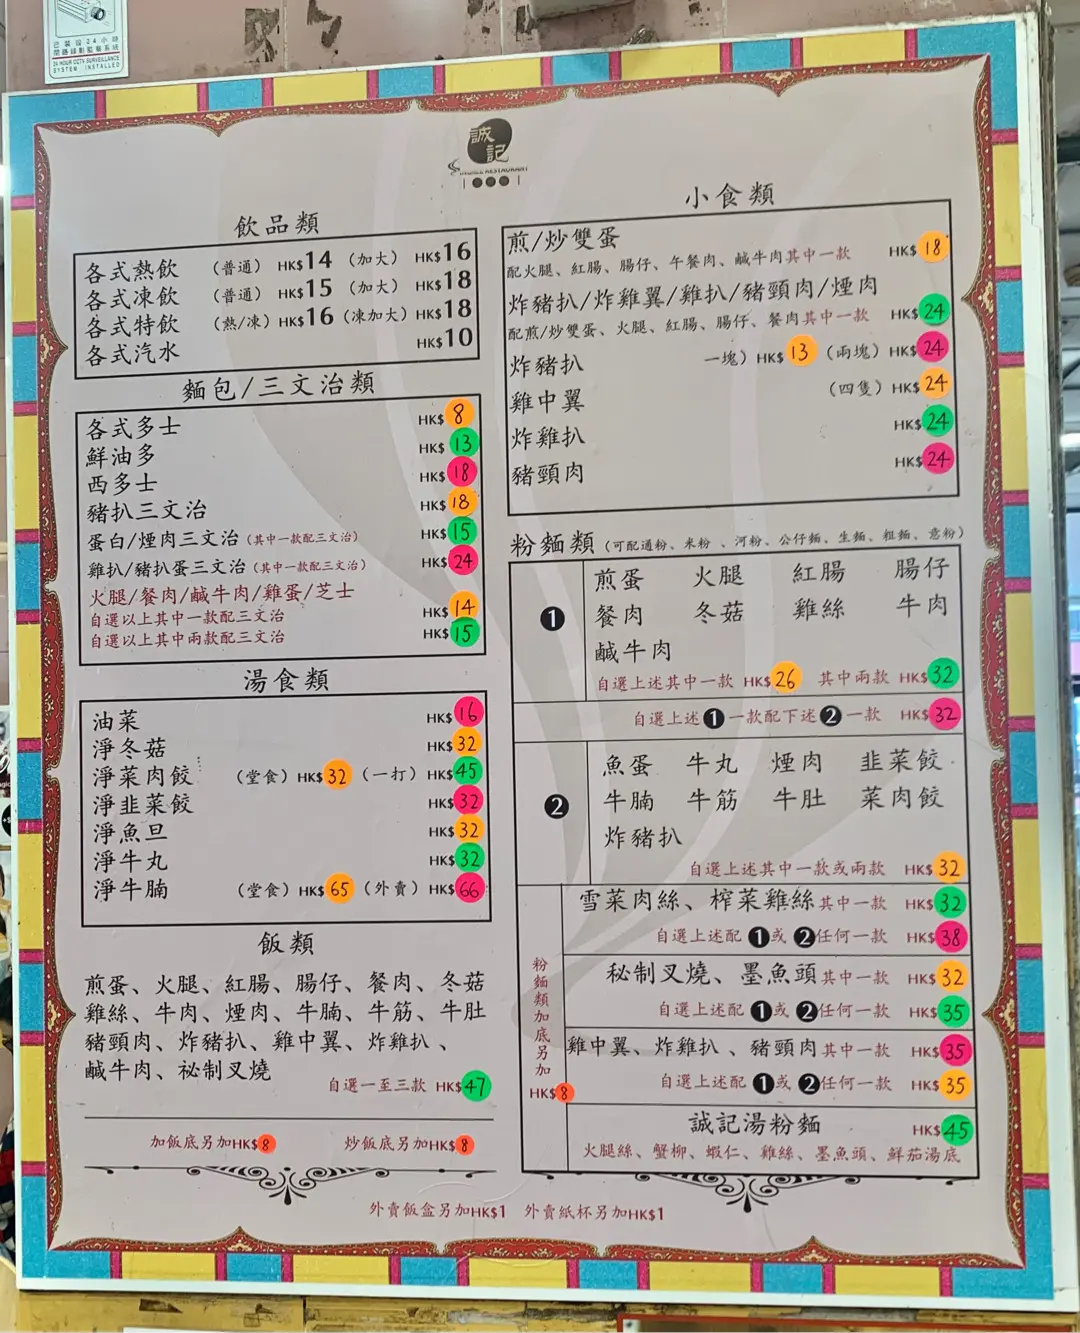 已裝設24小時
閉路錄影監察系統
24 HOUR CCTV SURVEILLANCE
SYSTEM INSTALLED
誠記
RESTAURANT
飲品類
各式熱飲 (普通) HK$14 (加大) HK$16
各式凍飲 (普通) HK$15 (加大) HK$18
各式特飲 (熱/凍) HK$16 (凍加大) HK$18
各式汽水 HK$10
麵包/三文治類
各式多士 HK$8
鮮油多 HK$13
西多士 HK$18
豬扒三文治 HK$18
蛋白/煙肉三文治 (其中一款配三文治) HK$15
雞扒/豬扒蛋三文治 (其中一款配三文治) HK$24
火腿/餐肉/鹹牛肉/雞蛋/芝士
自選以上其中一款配三文治 HK$14
自選以上其中兩款配三文治 HK$15
湯食類
油菜 HK$16
淨冬菇 HK$32
淨菜肉餃 (堂食) HK$32 (一打) HK$45
淨韭菜餃 HK$32
淨魚旦 HK$32
淨牛丸 HK$32
淨牛腩 (堂食) HK$65 (外賣) HK$66
飯類
煎蛋、火腿、紅腸、腸仔、餐肉、冬菇
雞絲、牛肉、煙肉、牛腩、牛筋、牛肚
豬頸肉、炸豬扒、雞中翼、炸雞扒、
鹹牛肉、祕制叉燒
自選一至三款 HK$47
加飯底另加HK$8 炒飯底另加HK$8
小食類
煎/炒雙蛋 HK$18
配火腿、紅腸、腸仔、午餐肉、鹹牛肉其中一款
炸豬扒/炸雞翼/雞扒/豬頸肉/煙肉
配煎/炒雙蛋、火腿、紅腸、腸仔、餐肉其中一款 HK$24
炸豬扒 一塊) HK$13 (兩塊) HK$24
雞中翼 (四隻) HK$24
炸雞扒 HK$24
豬頸肉 HK$24
粉麵類 (可配通粉、米粉、河粉、公仔麵、生麵、粗麵、意粉)
1
煎蛋 火腿 紅腸 腸仔
餐肉 冬菇 雞絲 牛肉
鹹牛肉
自選上述其中一款 HK$26 其中兩款 HK$32
自選上述1一款配下述2一款 HK$32
2
魚蛋 牛丸 煙肉 韭菜餃
牛腩 牛筋 牛肚 菜肉餃
炸豬扒
自選上述其中一款或兩款 HK$32
粉麵類加底另加
HK$8
雪菜肉絲、榨菜雞絲其中一款 HK$32
自選上述配1或2任何一款 HK$38
秘制叉燒、墨魚頭其中一款 HK$32
自選上述配1或2任何一款 HK$35
雞中翼、炸雞扒、豬頸肉其中一款 HK$35
自選上述配1或2任何一款 HK$35
誠記湯粉麵 HK$45
火腿絲、蟹柳、蝦仁、雞絲、墨魚頭、鮮茄湯底
外賣飯盒另加HK$1 外賣紙杯另加HK$1